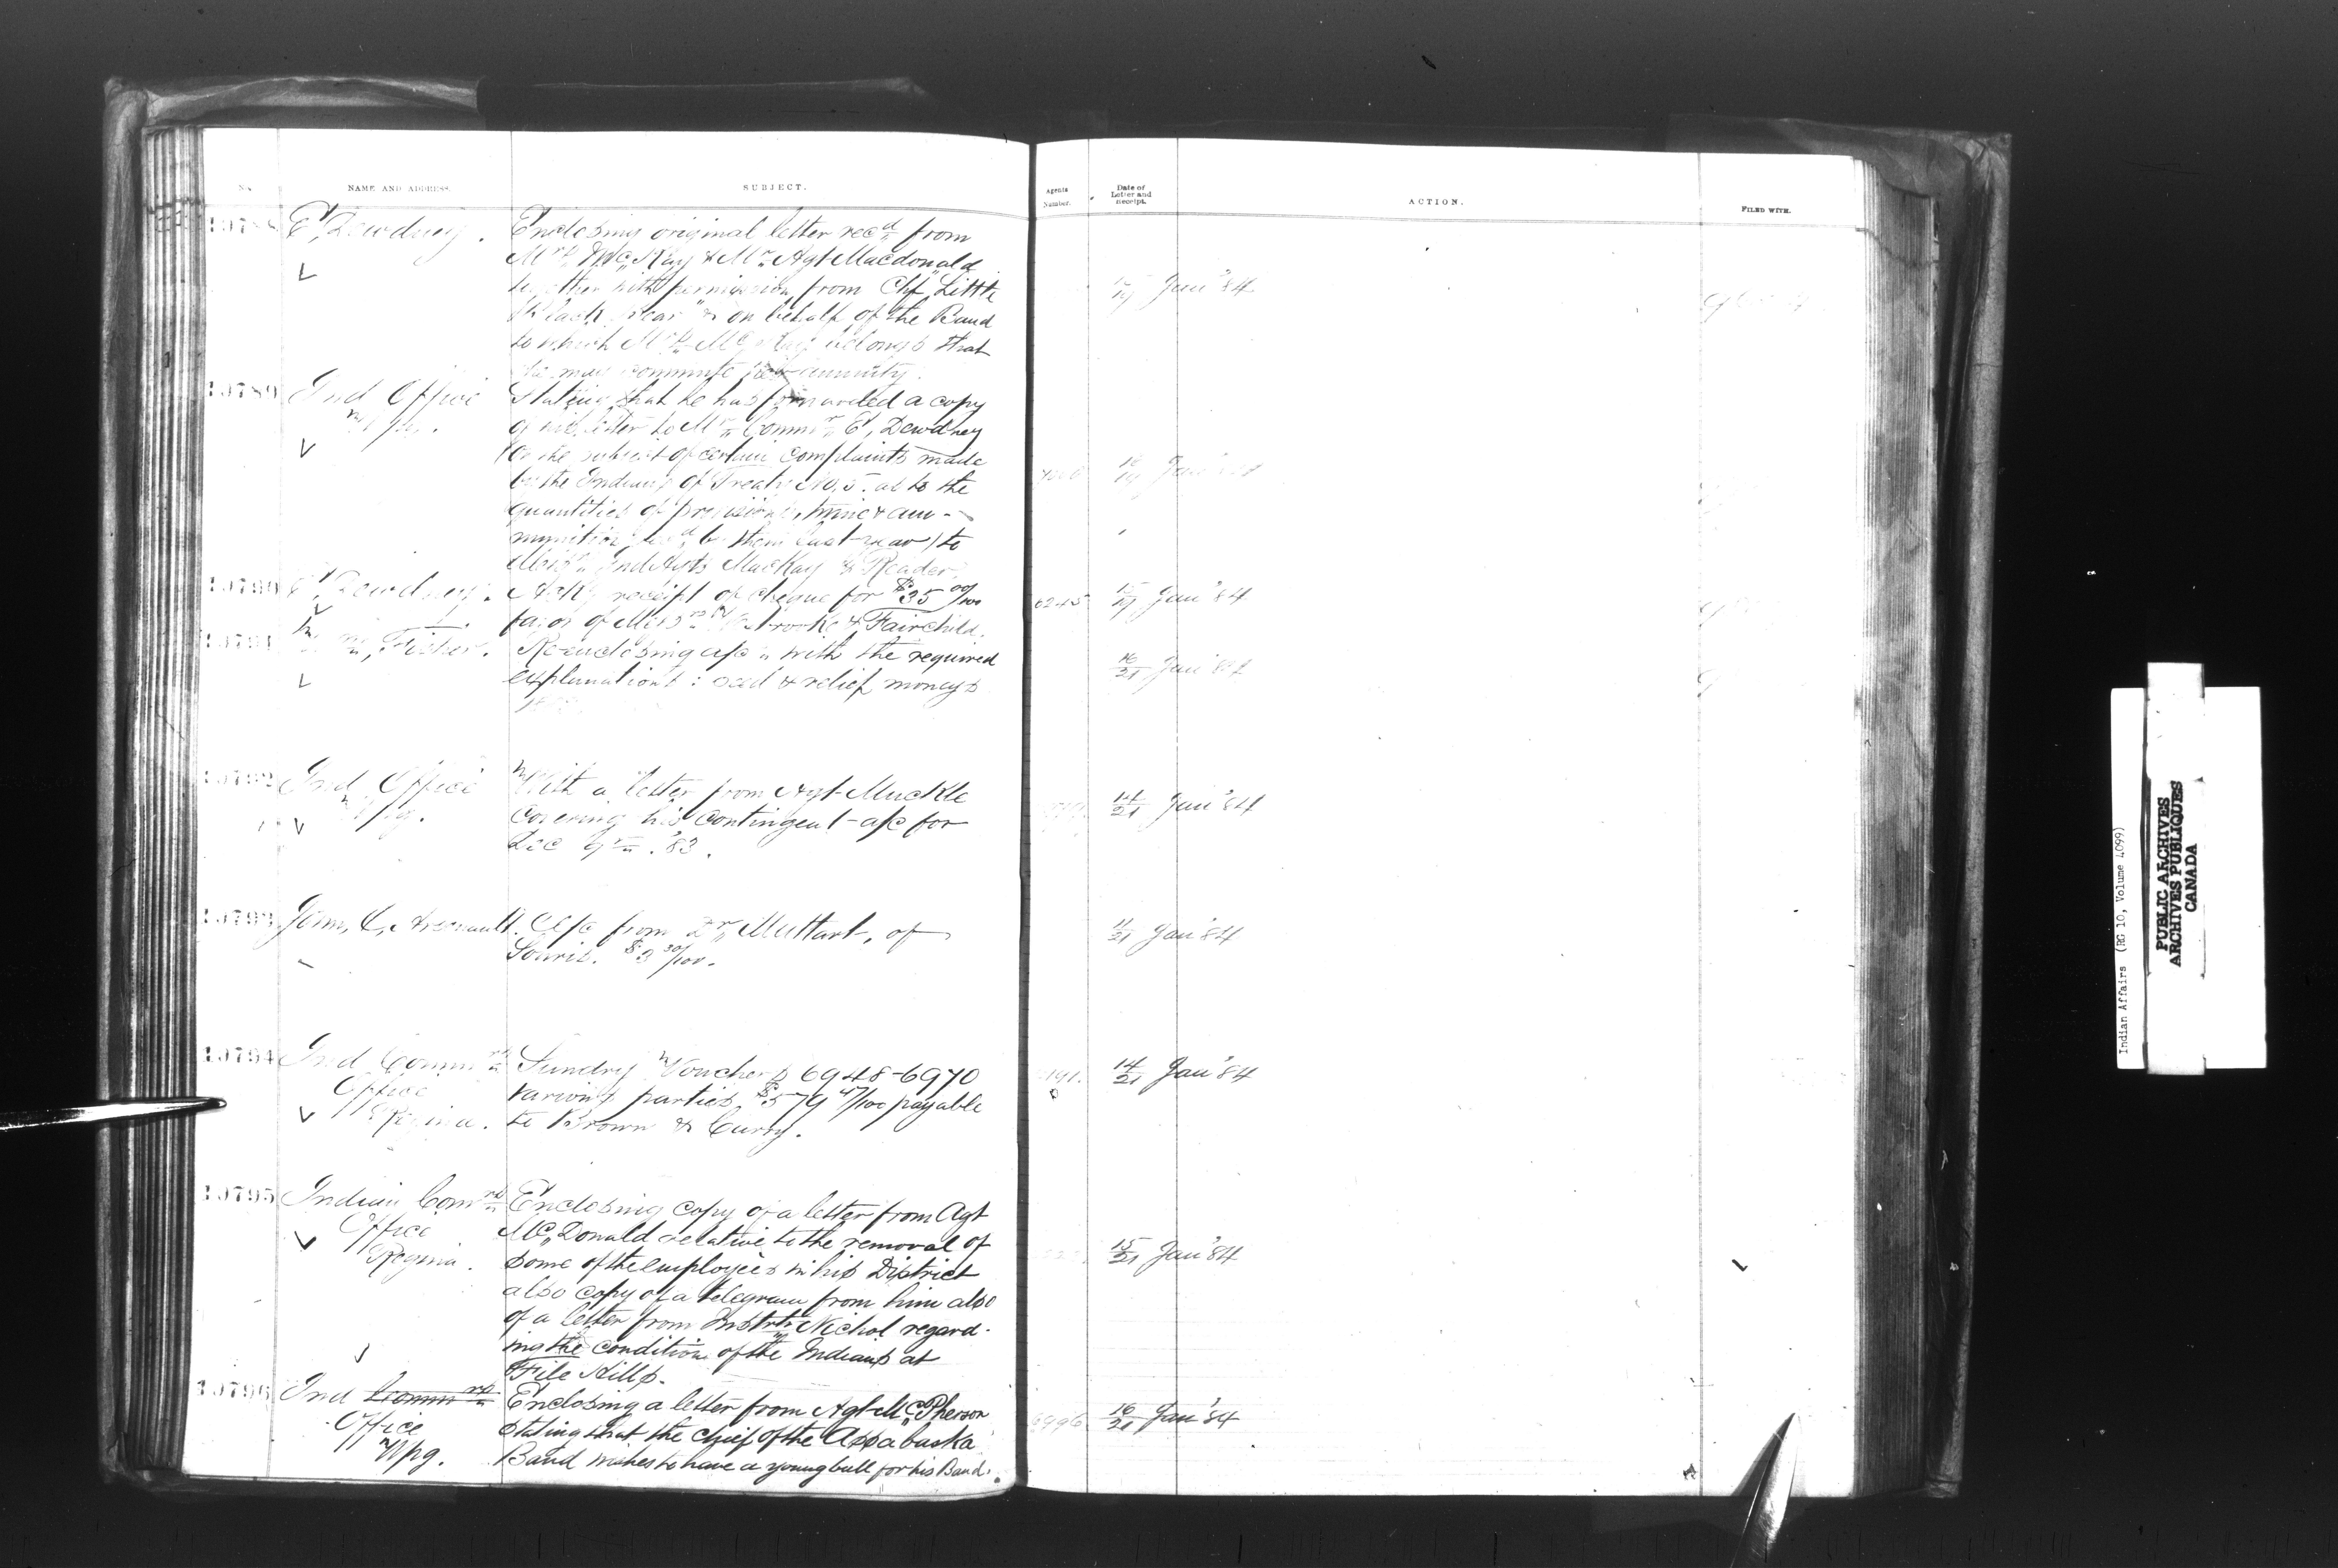 No. NAME AND ADDRESS. SUBJECT. Agents Number. Date of Letter and receipt. ACTION. FILED WITH.
10788 E. Dewdney. Enclosing original letter recd from
Mrs McKay & Mr Agt Macdonald
together with permission from Chf "Little
Black Bear" & on behalf of the Band 17/19 Jan '84
to which Mrs McKay belongs that
she may commute her annuity.
10789 Ind Office Stating that he has forwarded a copy
Wpg. of his letter to Mr Commr E. Dewdney
(on the subject of certain complaints made
by the Indians of Treaty No. 5. as to the Jan '84
quantities of provisions, twine & am-
munition recd by them last year) to
Ind Agts MacKay & Reader.
10790 E. Dewdney. Ackg receipt of cheque for $35 00/100 6245 15/19 Jan '84
favor of Messrs & Fairchild.
10791 Wm Fisher. Re-enclosing a/c with the required
explanations: seed & relief moneys 16/21 Jan '84
10792 Ind Office With a letter from Agt Muckle
Wpg. covering his contingent a/c for 14/21 Jan '84
Dec '83.
10793 John, O, Arsenault. A/c from Dr Muttart, of
Souris. $3 30/100. 11/21 Jan '84
10794 Ind Commrs Sundry Vouchers 6948-6970
Office various parties, $579 47/100 payable 14/21 Jan '84
Regina. to Brown & Curry.
10795 Indian Comrs Enclosing copy of a letter from Agt
Office McDonald relative to the removal of
Regina. some of the employees in his District 15/21 Jan '84
also copy of a telegram from him also
of a letter from Instrtr Nichol regard-
ing the condition of the Indians at
File Hills.
10796 Ind Commrs Enclosing a letter from Agt McPherson
Office stating that the chief of the Assabaska 6996 16/21 Jan '84
Wpg. Band wishes to have a young bull for his Band.
Indian Affairs (RG 10, Volume 4099)
PUBLIC ARCHIVES
ARCHIVES PUBLIQUES
CANADA